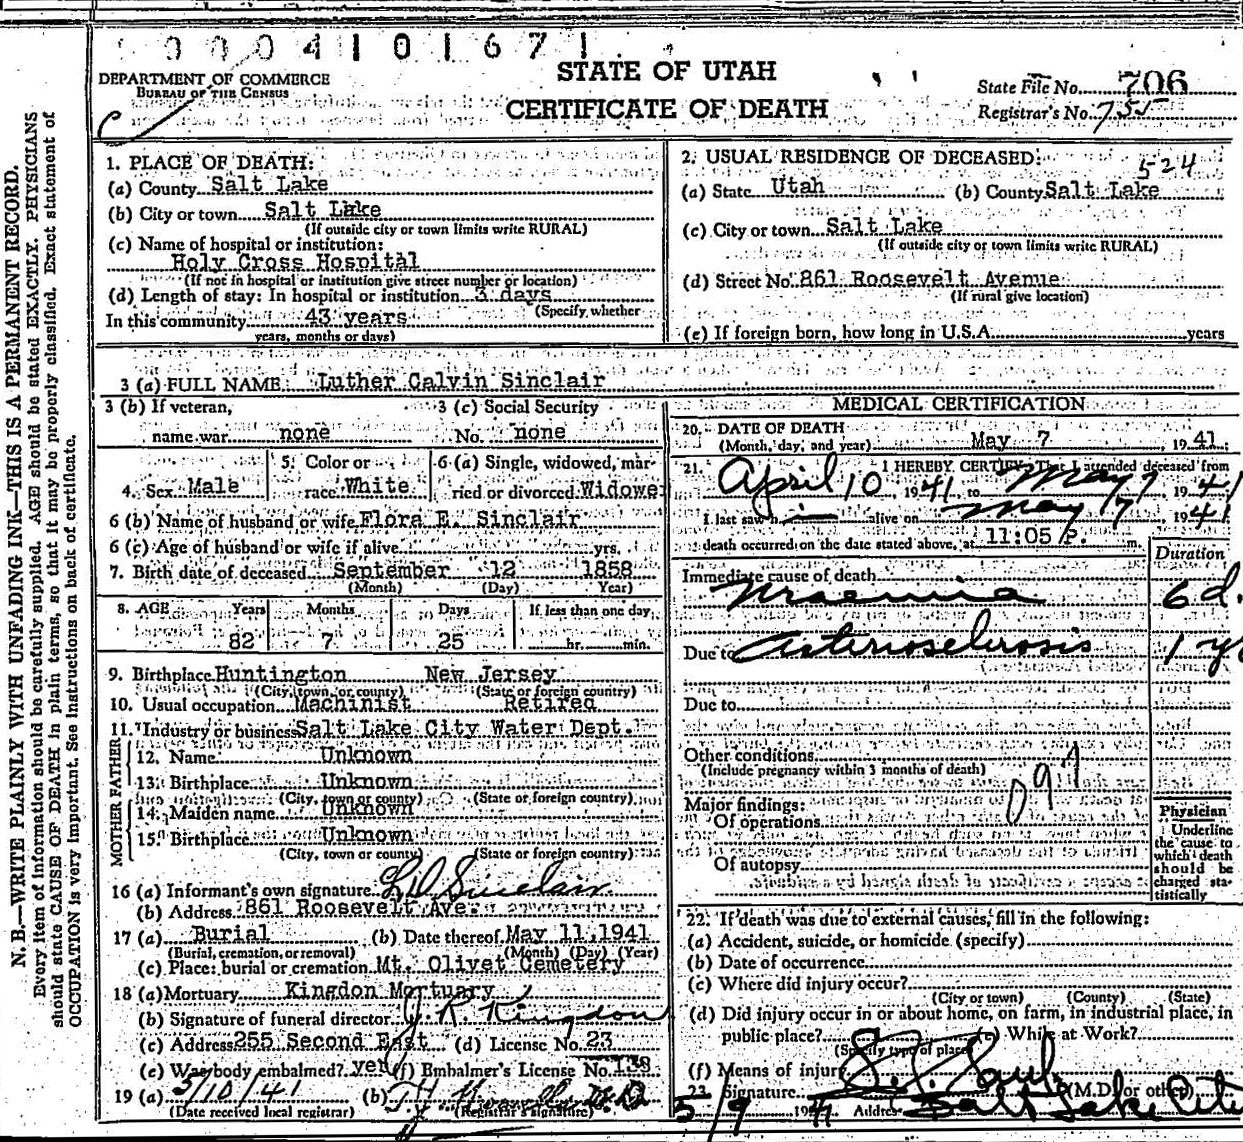 0004101671
DEPARTMENT OF COMMERCE
BUREAU OF THE CENSUS
STATE OF UTAH
CERTIFICATE OF DEATH
State File No. 706
Registrar's No. 755
N. B.—WRITE PLAINLY WITH UNFADING INK—THIS IS A PERMANENT RECORD.
Every item of information should be carefully supplied. AGE should be stated EXACTLY. PHYSICIANS
should state CAUSE OF DEATH in plain terms, so that it may be properly classified. Exact statement of
OCCUPATION is very important. See instructions on back of certificate.
1. PLACE OF DEATH:
(a) County Salt Lake
(b) City or town Salt Lake
(If outside city or town limits write RURAL)
(c) Name of hospital or institution:
Holy Cross Hospital
(If not in hospital or institution give street number or location)
(d) Length of stay: In hospital or institution 3 days
(Specify whether
In this community 43 years
years, months or days)
2. USUAL RESIDENCE OF DECEASED:
524
(a) State Utah (b) County Salt Lake
(c) City or town Salt Lake
(If outside city or town limits write RURAL)
(d) Street No. 861 Roosevelt Avenue
(If rural give location)
(e) If foreign born, how long in U.S.A. years
3 (a) FULL NAME: Luther Calvin Sinclair
3 (b) If veteran, 3 (c) Social Security
name war none No. none
4. Sex Male 5. Color or race White 6 (a) Single, widowed, married or divorced Widowe
6 (b) Name of husband or wife Flora E. Sinclair
6 (c) Age of husband or wife if alive yrs.
7. Birth date of deceased September 12 1858
(Month) (Day) Year)
8. AGE Years Months Days If less than one day,
82 7 25 hr. min.
9. Birthplace Huntington New Jersey
(City, town, or county) (State or foreign country)
10. Usual occupation Machinist Retired
11. Industry or business Salt Lake City Water Dept.
FATHER
12. Name Unknown
13. Birthplace Unknown
(City, town or county) (State or foreign country)
MOTHER
14. Maiden name Unknown
15. Birthplace Unknown
(City, town or county) (State or foreign country)
16 (a) Informant's own signature L D Sinclair
(b) Address 861 Roosevelt Ave.
17 (a) Burial (b) Date thereof May 11, 1941
(Burial, cremation, or removal) (Month) (Day) (Year)
(c) Place: burial or cremation Mt. Olivet Cemetery
18 (a) Mortuary Kingdon Mortuary
(b) Signature of funeral director J. R. Kingdon
(c) Address 255 Second East (d) License No. 23
(e) Was body embalmed? yes (f) Embalmer's License No. 138
19 (a) 5/10/41 (b)
(Date received local registrar) (Registrar's signature)
MEDICAL CERTIFICATION
20. DATE OF DEATH
(Month, day, and year) May 7, 1941
21. I HEREBY CERTIFY, That I attended deceased from
April 10 1941, to May 7 1941
I last saw h i alive on May 7 1941
death occurred on the date stated above, at 11:05 P. m.
Duration
Immediate cause of death
Uraemia 6 d.
Due to Arteriosclerosis 1 yr
Due to
Other conditions
(Include pregnancy within 3 months of death)
097
Major findings:
Of operations
Of autopsy
Physician
Underline
the cause to
which death
should be
charged sta-
tistically
22. If death was due to external causes, fill in the following:
(a) Accident, suicide, or homicide (specify)
(b) Date of occurrence
(c) Where did injury occur?
(City or town) (County) (State)
(d) Did injury occur in or about home, on farm, in industrial place, in
public place? (e) While at Work?
(Specify type of place)
(f) Means of injury
23. Signature S. C. Paul (M.D. or other)
5/9 1941 Address Salt Lake City